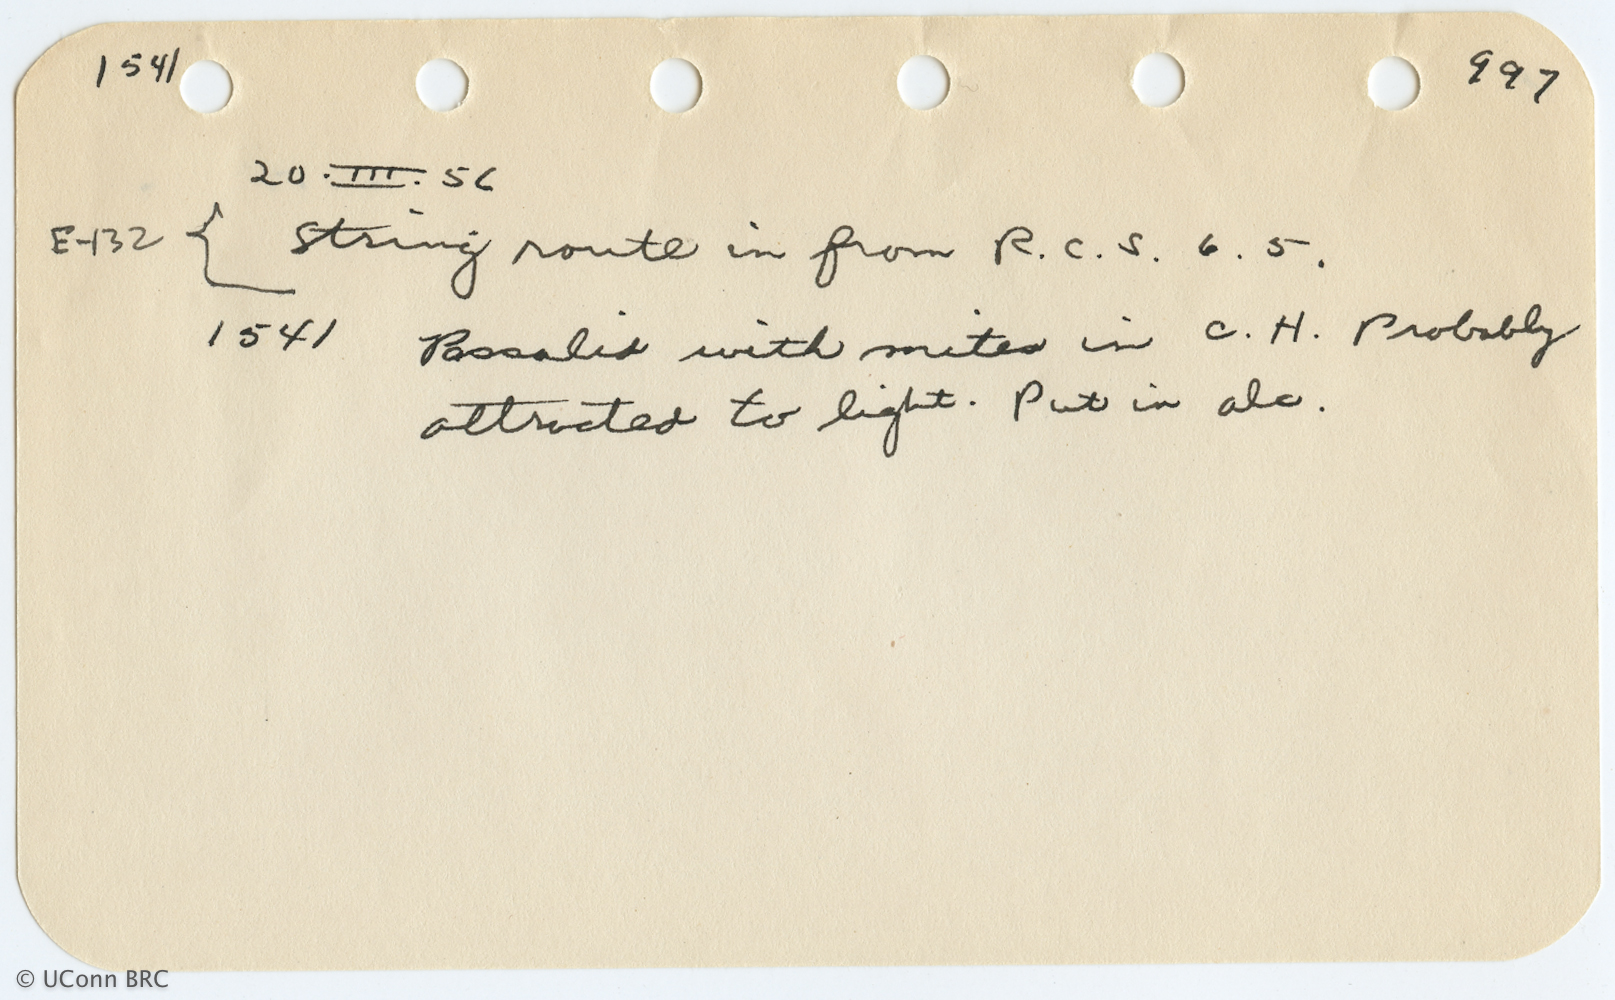 1541 997
20.III.56
E-132 { String route in from R.C.S. 6.5.
1541 Passalid with mites in C.H. Probably
attracted to light. Put in alc.
© UConn BRC